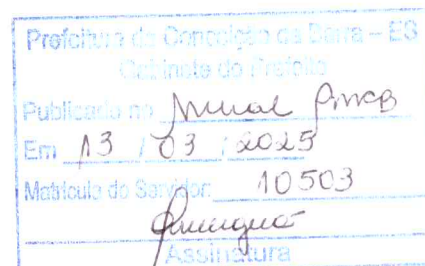 Prefeitura de Conceição da Barra – ES
Gabinete do Prefeito
Publicado no Mural PMCB
Em 13 / 03 / 2025
Matrícula do Servidor: 10503
Assinatura